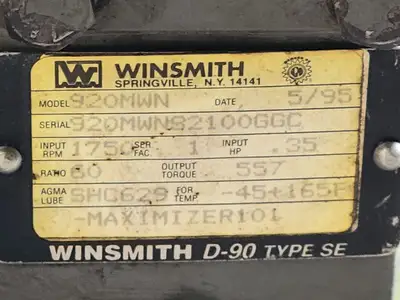 WINSMITH
SPRINGVILLE, N.Y. 14141
MODEL 920MWN DATE 5/95
SERIAL 920MWNS2100GGC
INPUT RPM 1750 SER FAC. 1 INPUT HP .35
RATIO 60 OUTPUT TORQUE 557
AGMA LUBE SHC629 FOR TEMP. -45+165F
-MAXIMIZER101
WINSMITH D-90 TYPE SE